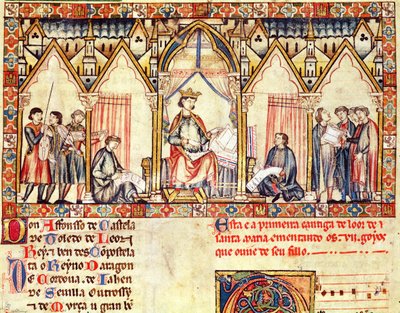 Don Affonsso de Castela
de Toledo de Leon
Rey τ ben des Cõpostela
ta o Reyno Daragon
De Cordoua de Jahen
De Seuilla outrossy
τ de Murça u gran bē
Esta e a primeira cantiga de loor de
santa maria ementando os .vii. goyos
que ouue de seu fillo.